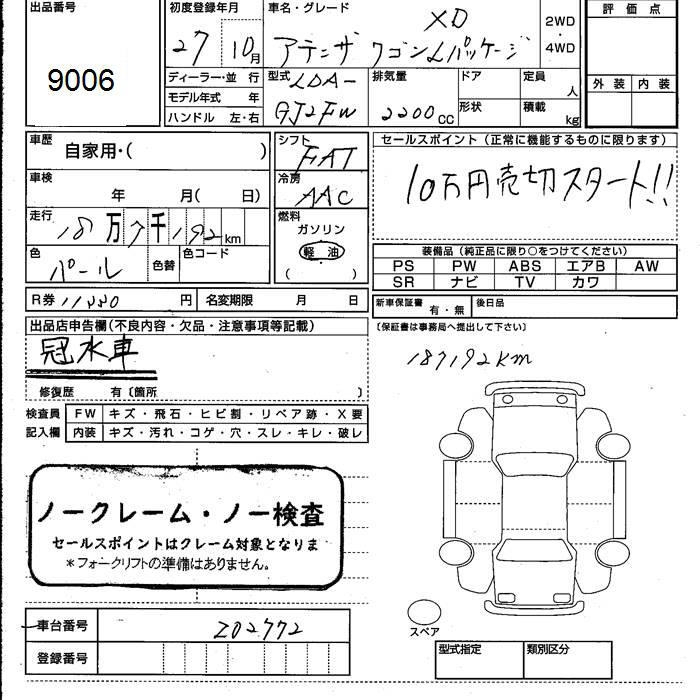 出品番号 初度登録年月 車名・グレード 評価点
9006 27 10月 アテンザ ワゴンLパッケージ XD 2WD・4WD
ディーラー・並 行 型式 LDA- 排気量 ドア 定員 人 外装 内装
モデル年式 年 GJ2FW 2200cc 形状 積載 kg
ハンドル 左・右
車歴 自家用・( ) シフト FAT セールスポイント (正常に機能するものに限ります)
車検 年 月( 日) 冷房 AAC 10万円売切スタート!!
走行 18万7千192km 燃料 ガソリン
色 パール 色替 色コード 軽油 装備品 (純正品に限り○をつけてください)
( ) PS PW ABS エアB AW
SR ナビ TV カワ
R券 円 名変期限 月 日 新車保証書 有・無 後日品
出品店申告欄(不良内容・欠品・注意事項等記載) 〔保証書は事務局へ提出して下さい〕
冠水車 187192km
修復歴 有〔箇所 〕
検査員 FW キズ・飛石・ヒビ割・リペア跡・X要
記入欄 内装 キズ・汚れ・コゲ・穴・スレ・キレ・破レ
ノークレーム・ノー検査
セールスポイントはクレーム対象となりま
*フォークリフトの準備はありません。
車台番号 202772 スペア
登録番号 型式指定 類別区分